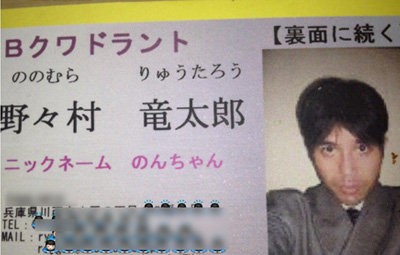 Bクワドラント
【裏面に続く
ののむら りゅうたろう
野々村 竜太郎
ニックネーム のんちゃん
兵庫県川
TEL:
MAIL: